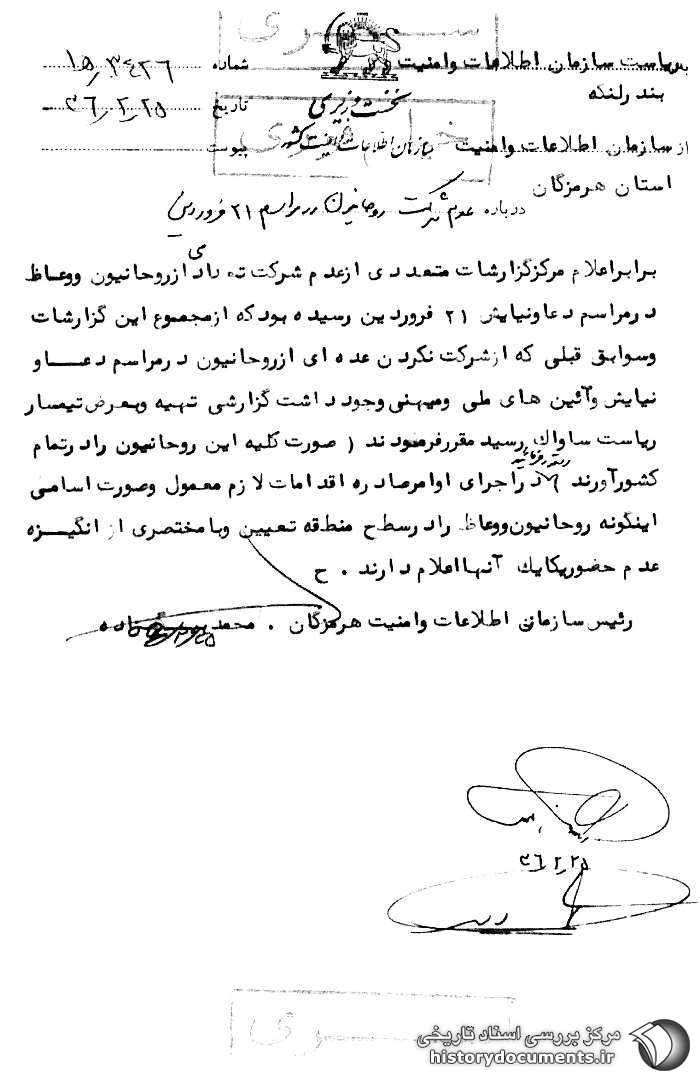 سری
بریاست سازمان اطلاعات وامنیت
بندرلنگه
شماره ۱۵٫۳۴۲۶
نخست وزیری
تاریخ ۳۶٫۲٫۲۵
از سازمان اطلاعات وامنیت
سازمان اطلاعات و امنیت کشور
پیوست
استان هرمزگان
درباره عدم شرکت روحانیون در مراسم ۲۱ فروردین
برابراعلام مرکزگزارشات متعددی ازعدم شرکت تعدادی ازروحانیون ووعاظ
درمراسم دعاونیایش ۲۱ فروردین رسیده بودکه ازمجموع این گزارشات
وسوابق قبلی که ازشرکت نکردن عده ای ازروحانیون درمراسم دعا و
نیایش وآئین های ملی ومیهنی وجود داشت گزارشی تهیه وبعرض تیمسار
ریاست ساواک رسید مقررفرمودند ( صورت کلیه این روحانیون رادرتمام
کشورآورند ) دراجرای اوامرصادره اقدامات لازم معمول وصورت اسامی
اینگونه روحانیون ووعاظ رادرسطح منطقه تعیین وبامختصری از انگیزه
عدم حضوریکایک آنهااعلام دارند . ح
رئیس سازمان اطلاعات وامنیت هرمزگان . محمد
۳۶٫۲٫۲۵
سری
مرکز بررسی اسناد تاریخی
historydocuments.ir